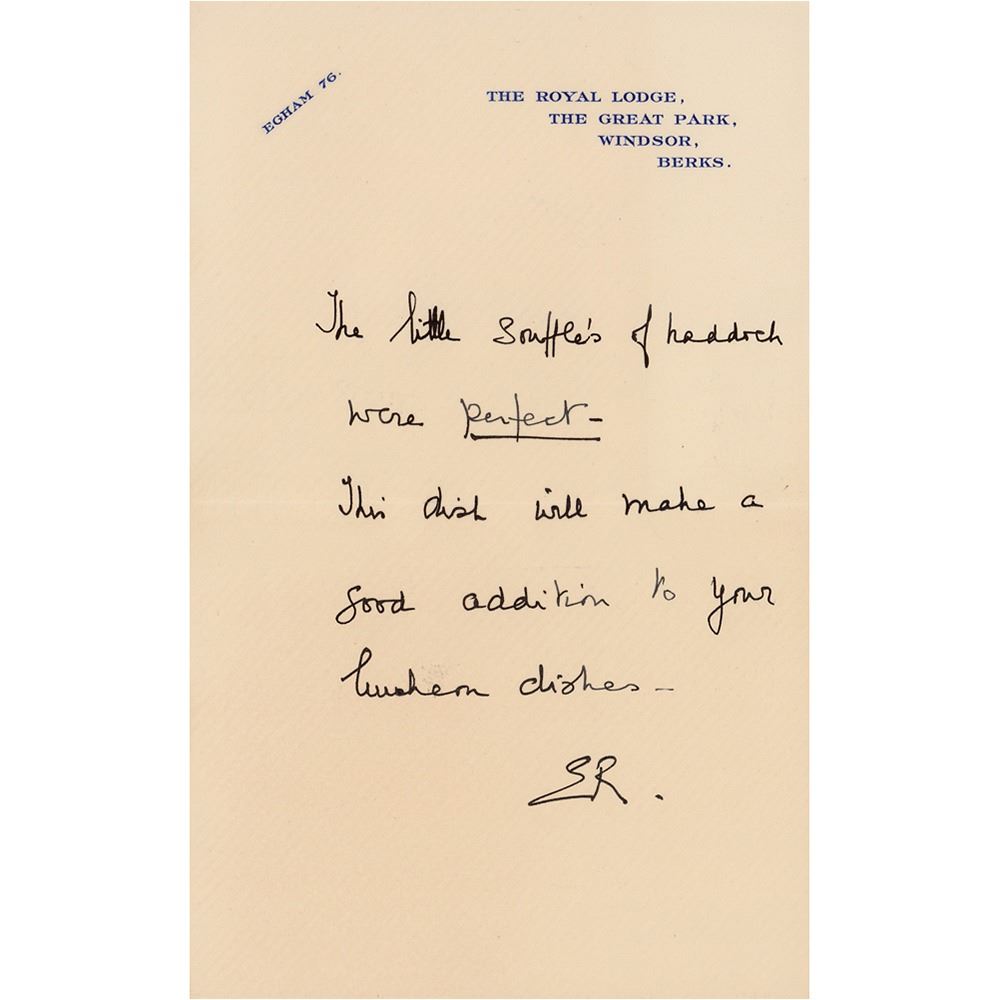 EGHAM 76.
THE ROYAL LODGE,
THE GREAT PARK,
WINDSOR,
BERKS.
The little Soufflé's of haddock
were perfect –
This dish will make a
good addition to your
luncheon dishes –
ER.